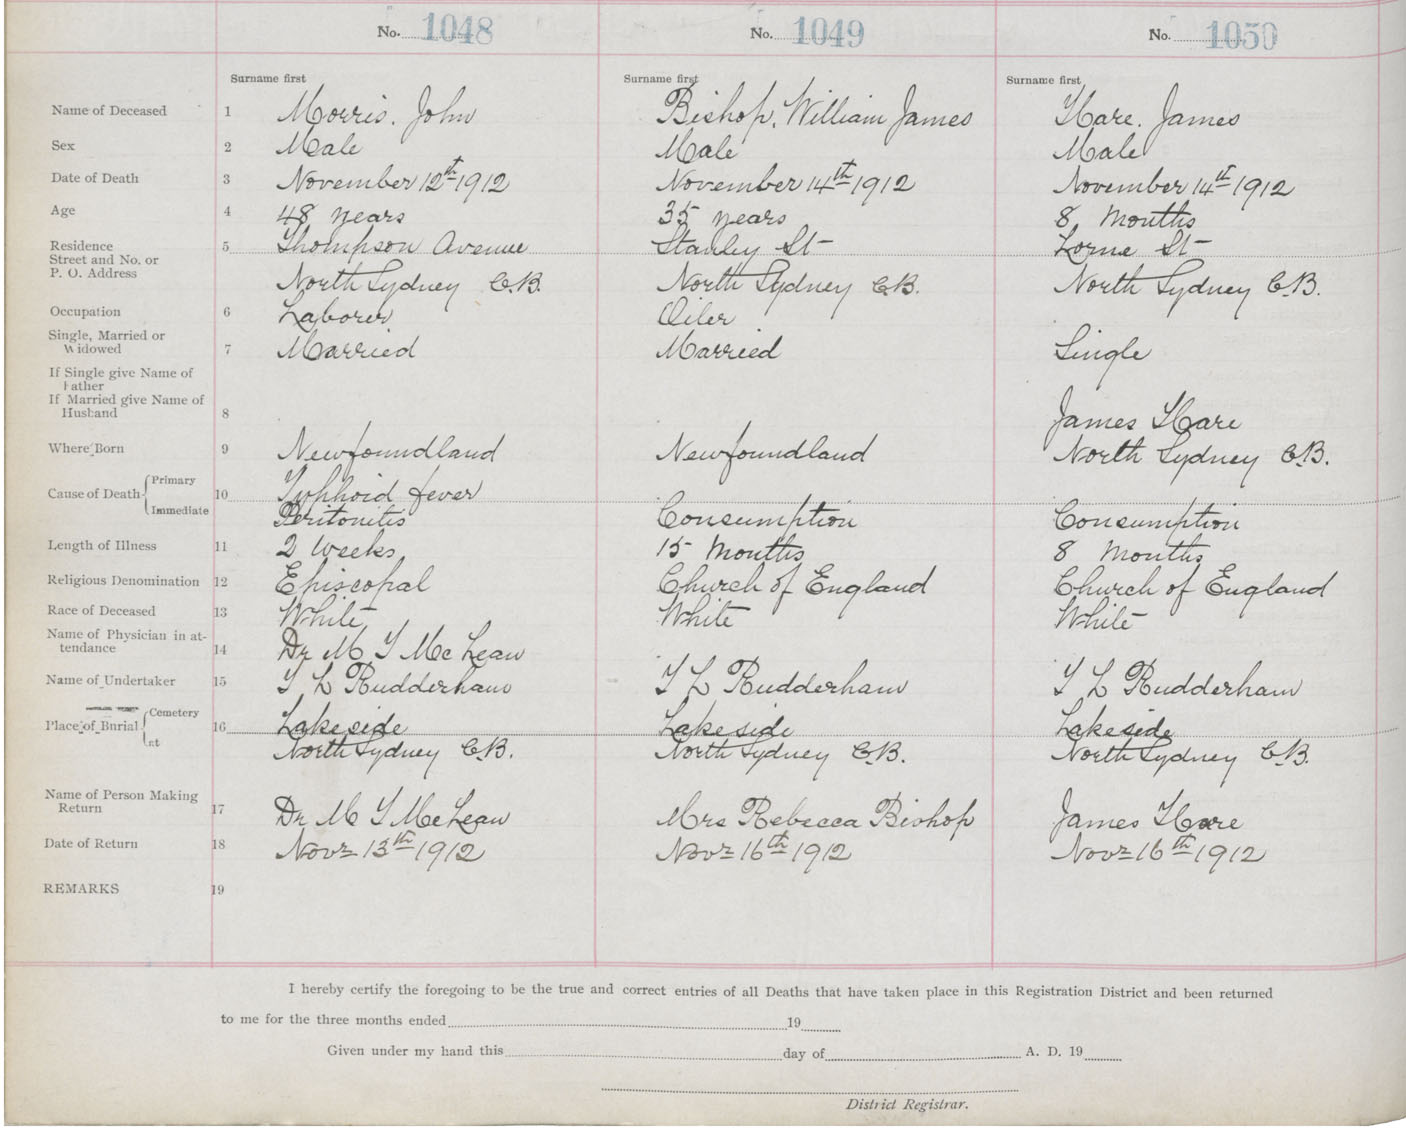 No. 1048 No. 1049 No. 1050
Surname first Surname first Surname first
Name of Deceased 1 Morris. John Bishop. William James Hare. James
Sex 2 Male Male Male
Date of Death 3 November 12th 1912 November 14th 1912 November 14th 1912
Age 4 48 years 35 years 8 Months
Residence 5 Thompson Avenue Stanley St Lorne St
Street and No. or
P. O. Address North Sydney C.B. North Sydney C.B. North Sydney C.B.
Occupation 6 Laborer Oiler
Single, Married or
Widowed 7 Married Married Single
If Single give Name of
Father
If Married give Name of
Husband 8 James Hare
Where Born 9 Newfoundland Newfoundland North Sydney C.B.
Cause of Death 10 Primary Typhoid fever
Immediate Peritonitis Consumption Consumption
Length of Illness 11 2 Weeks 15 Months 8 Months
Religious Denomination 12 Episcopal Church of England Church of England
Race of Deceased 13 White White White
Name of Physician in at-
tendance 14 Dr M T McLean
Name of Undertaker 15 T L Rudderham T L Rudderham T L Rudderham
Place of Burial 16 Cemetery Lakeside Lakeside Lakeside
at North Sydney C.B. North Sydney C.B. North Sydney C.B.
Name of Person Making
Return 17 Dr M T McLean Mrs Rebecca Bishop James Hare
Date of Return 18 Novr 13th 1912 Novr 16th 1912 Novr 16th 1912
REMARKS 19
I hereby certify the foregoing to be the true and correct entries of all Deaths that have taken place in this Registration District and been returned
to me for the three months ended 19
Given under my hand this day of A. D. 19
District Registrar.